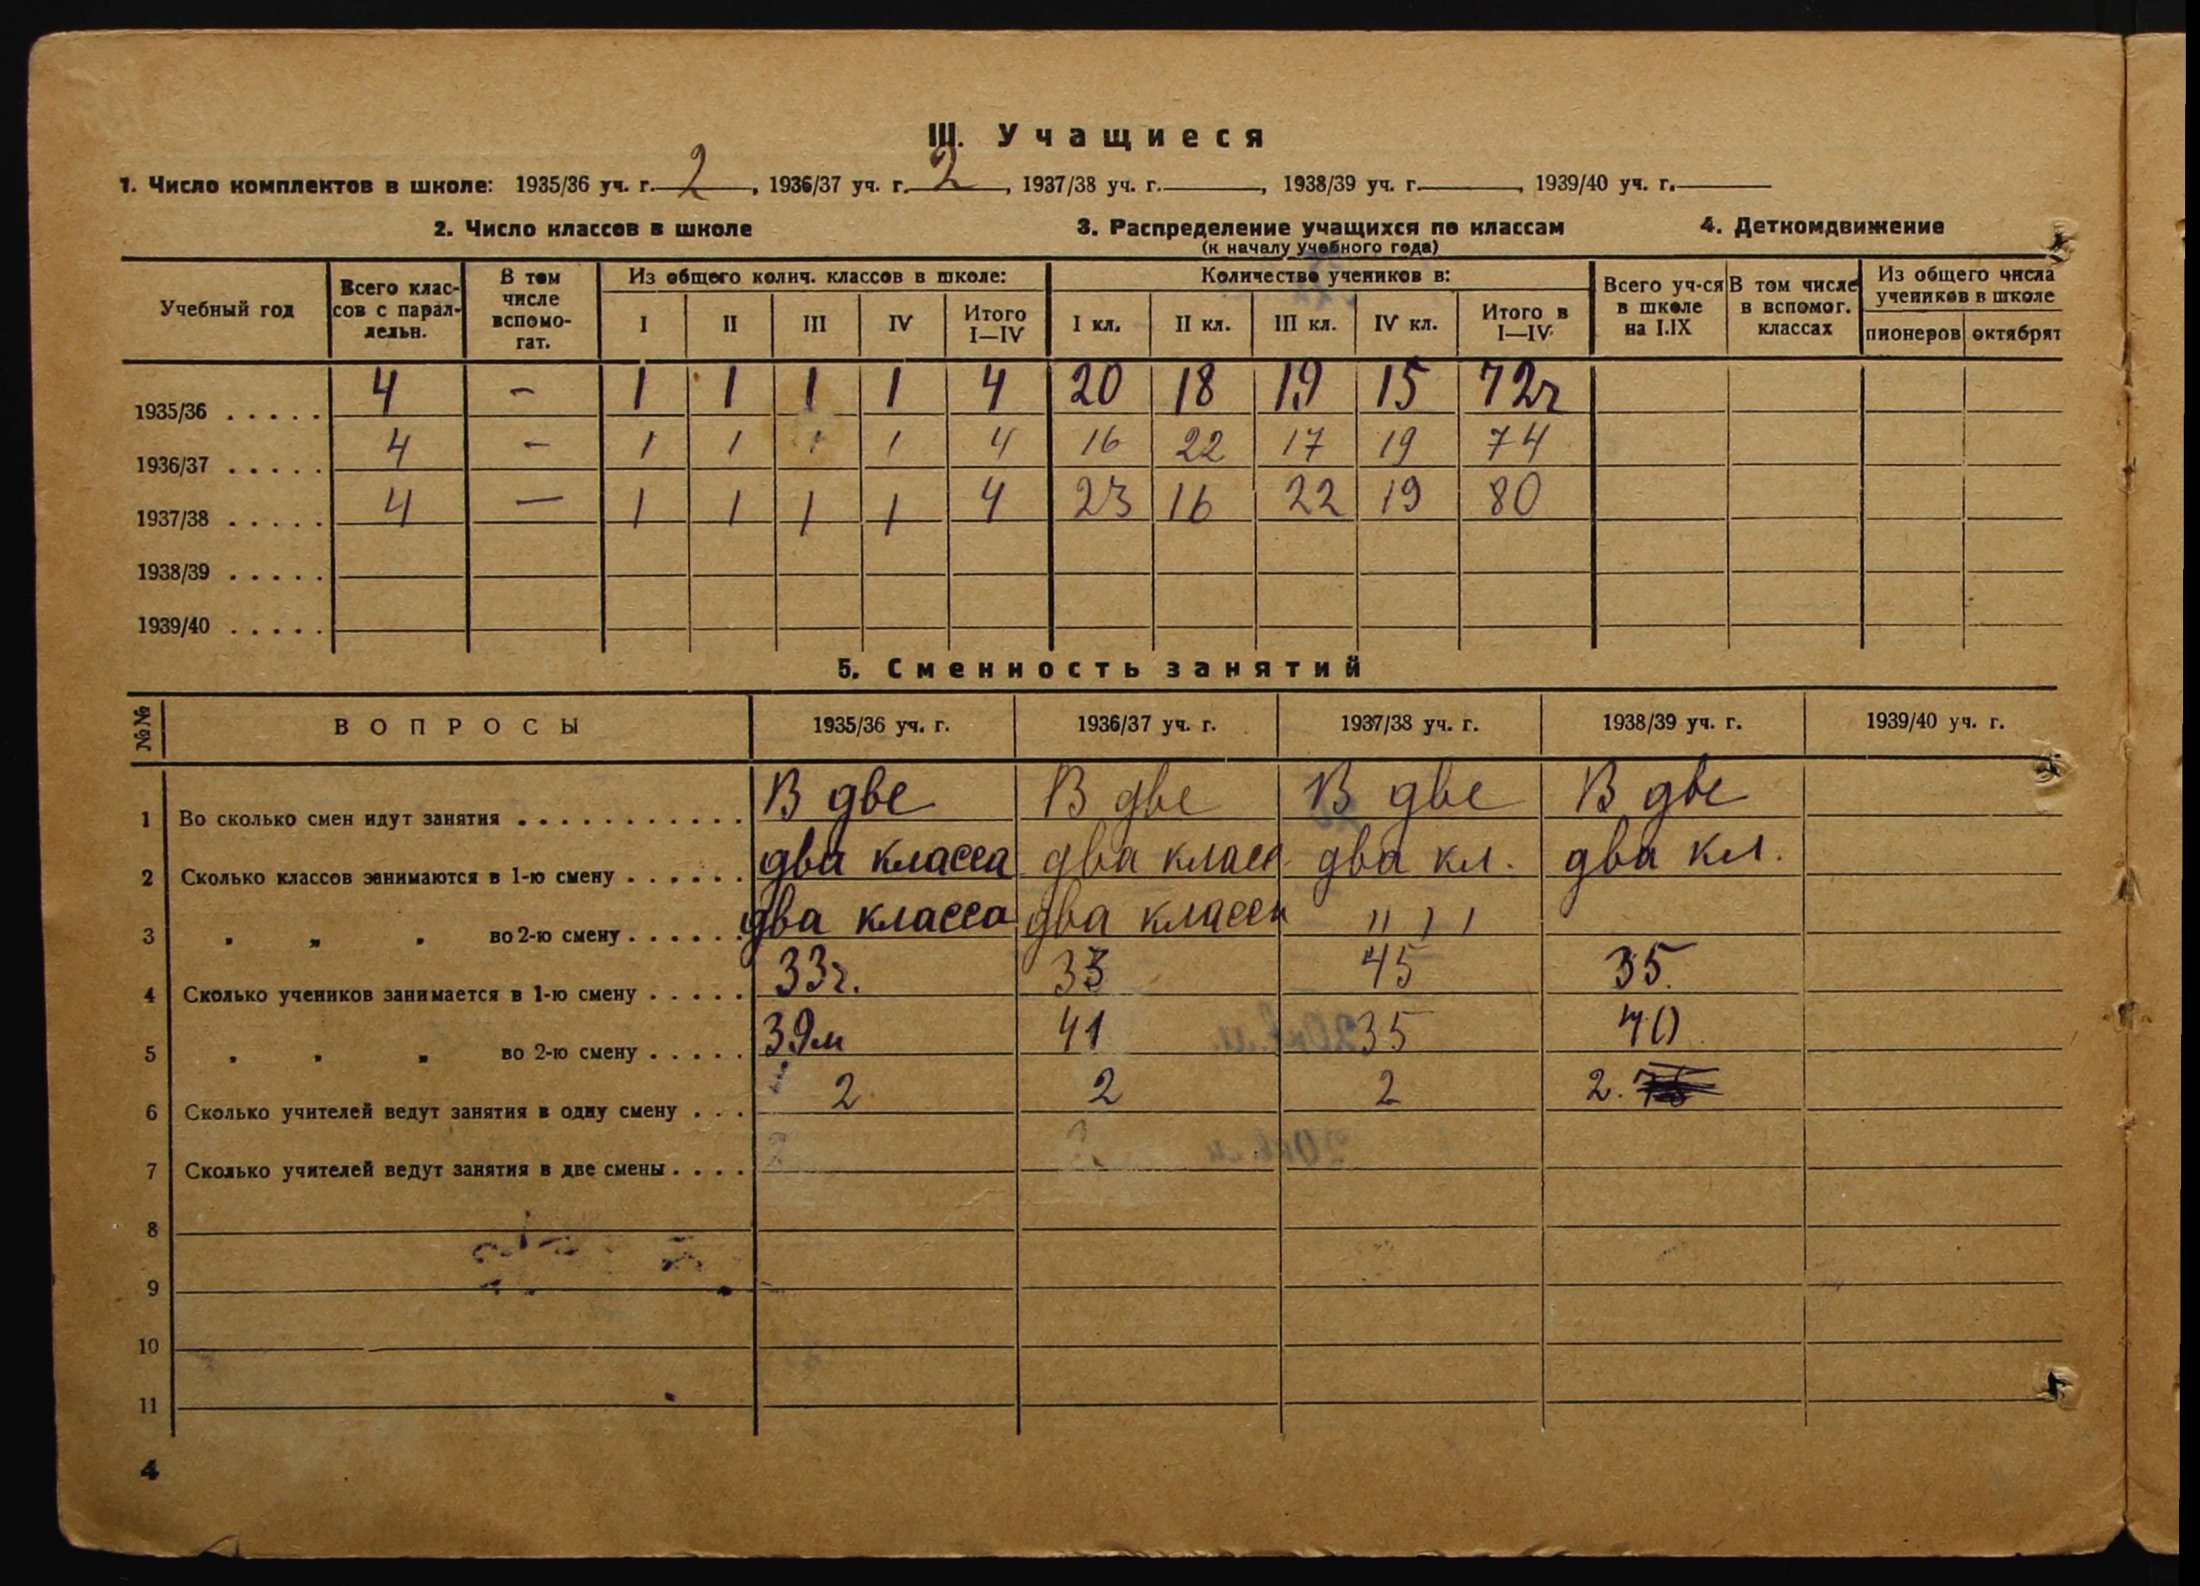 III. Учащиеся
1. Число комплектов в школе: 1935/36 уч. г. 2, 1936/37 уч. г. 2, 1937/38 уч. г. , 1938/39 уч. г. , 1939/40 уч. г.
2. Число классов в школе 3. Распределение учащихся по классам 4. Деткомдвижение
(к началу учебного года)
Учебный год Всего классов с параллельн. В том числе вспомогат. Из общего колич. классов в школе: Количество учеников в: Всего уч-ся в школе на I.IX В том числе в вспомог. классах Из общего числа учеников в школе
I II III IV Итого I—IV I кл. II кл. III кл. IV кл. Итого в I—IV пионеров октябрят
1935/36 . . . . . 4 – 1 1 1 1 4 20 18 19 15 72ч
1936/37 . . . . . 4 – 1 1 1 1 4 16 22 17 19 74
1937/38 . . . . . 4 — 1 1 1 1 4 23 16 22 19 80
1938/39 . . . . .
1939/40 . . . . .
5. Сменность занятий
№№ ВОПРОСЫ 1935/36 уч. г. 1936/37 уч. г. 1937/38 уч. г. 1938/39 уч. г. 1939/40 уч. г.
1 Во сколько смен идут занятия . . . . . . . . . . . В две В две В две В две
2 Сколько классов занимаются в 1-ю смену . . . . . . два класса два класс два кл. два кл.
3 „ „ „ во 2-ю смену . . . . . . два класса два класса " " "
4 Сколько учеников занимается в 1-ю смену . . . . . 33ч. 33 45 35.
5 „ „ „ во 2-ю смену . . . . . 39м 41 35 40
6 Сколько учителей ведут занятия в одну смену . . . 2 2 2 2.
7 Сколько учителей ведут занятия в две смены . . . .
8
9
10
11
4